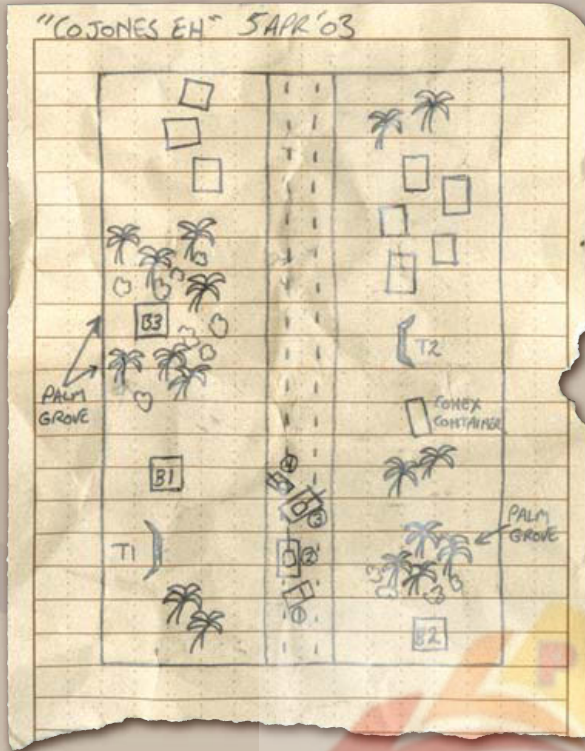 "COJONES EH" 5 APR '03
B3
T2
PALM
GROVE
CONEX
CONTAINER
B1
4
3
PALM
GROVE
T1
2
1
B2
P